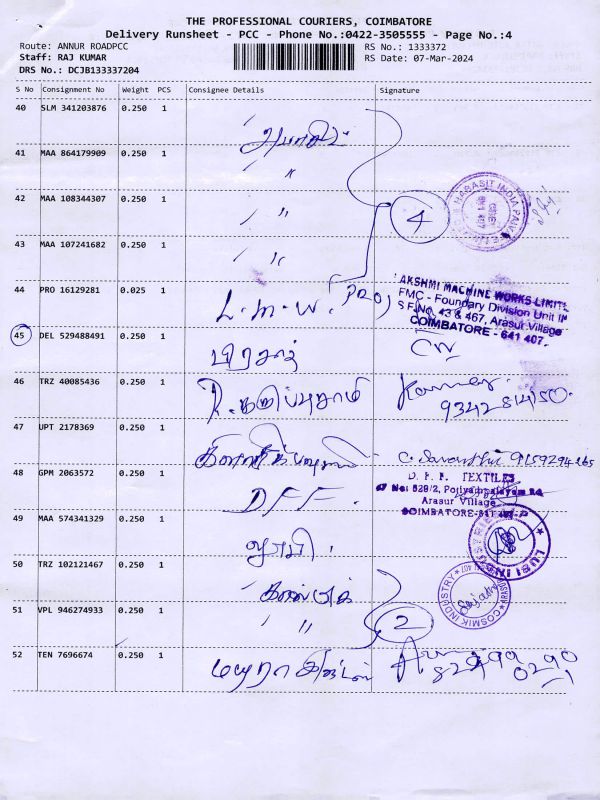 THE PROFESSIONAL COURIERS, COIMBATORE
Delivery Runsheet - PCC - Phone No.:0422-3505555 - Page No.:4
Route: ANNUR ROADPCC
RS No.: 1333372
Staff: RAJ KUMAR
RS Date: 07-Mar-2024
DRS No.: DCJB133337204
S No Consignment No Weight PCS Consignee Details Signature
40 SLM 341203876 0.250 1
41 MAA 864179909 0.250 1
42 MAA 108344307 0.250 1
4
43 MAA 107241682 0.250 1
44 PRO 16129281 0.025 1
L.M.W. (PRO)
LAKSHMI MACHINE WORKS LIMITE
FMC - Foundary Division Unit II
S.F.No. 43 & 467, Arasur Village
COIMBATORE - 641 407.
45 DEL 529488491 0.250 1
பிரசாந்
46 TRZ 40085436 0.250 1
47 UPT 2178369 0.250 1
9159294265
48 GPM 2063572 0.250 1
DFF.
D. F. F. TEXTILES
Arasur Village
COIMBATORE-641 407
49 MAA 574341329 0.250 1
லூபி.
LUBI INDUSTRIES
50 TRZ 102121467 0.250 1
காஸ்மிக்
COSMIK INDUSTRY
51 VPL 946274933 0.250 1
" "
2
52 TEN 7696674 0.250 1